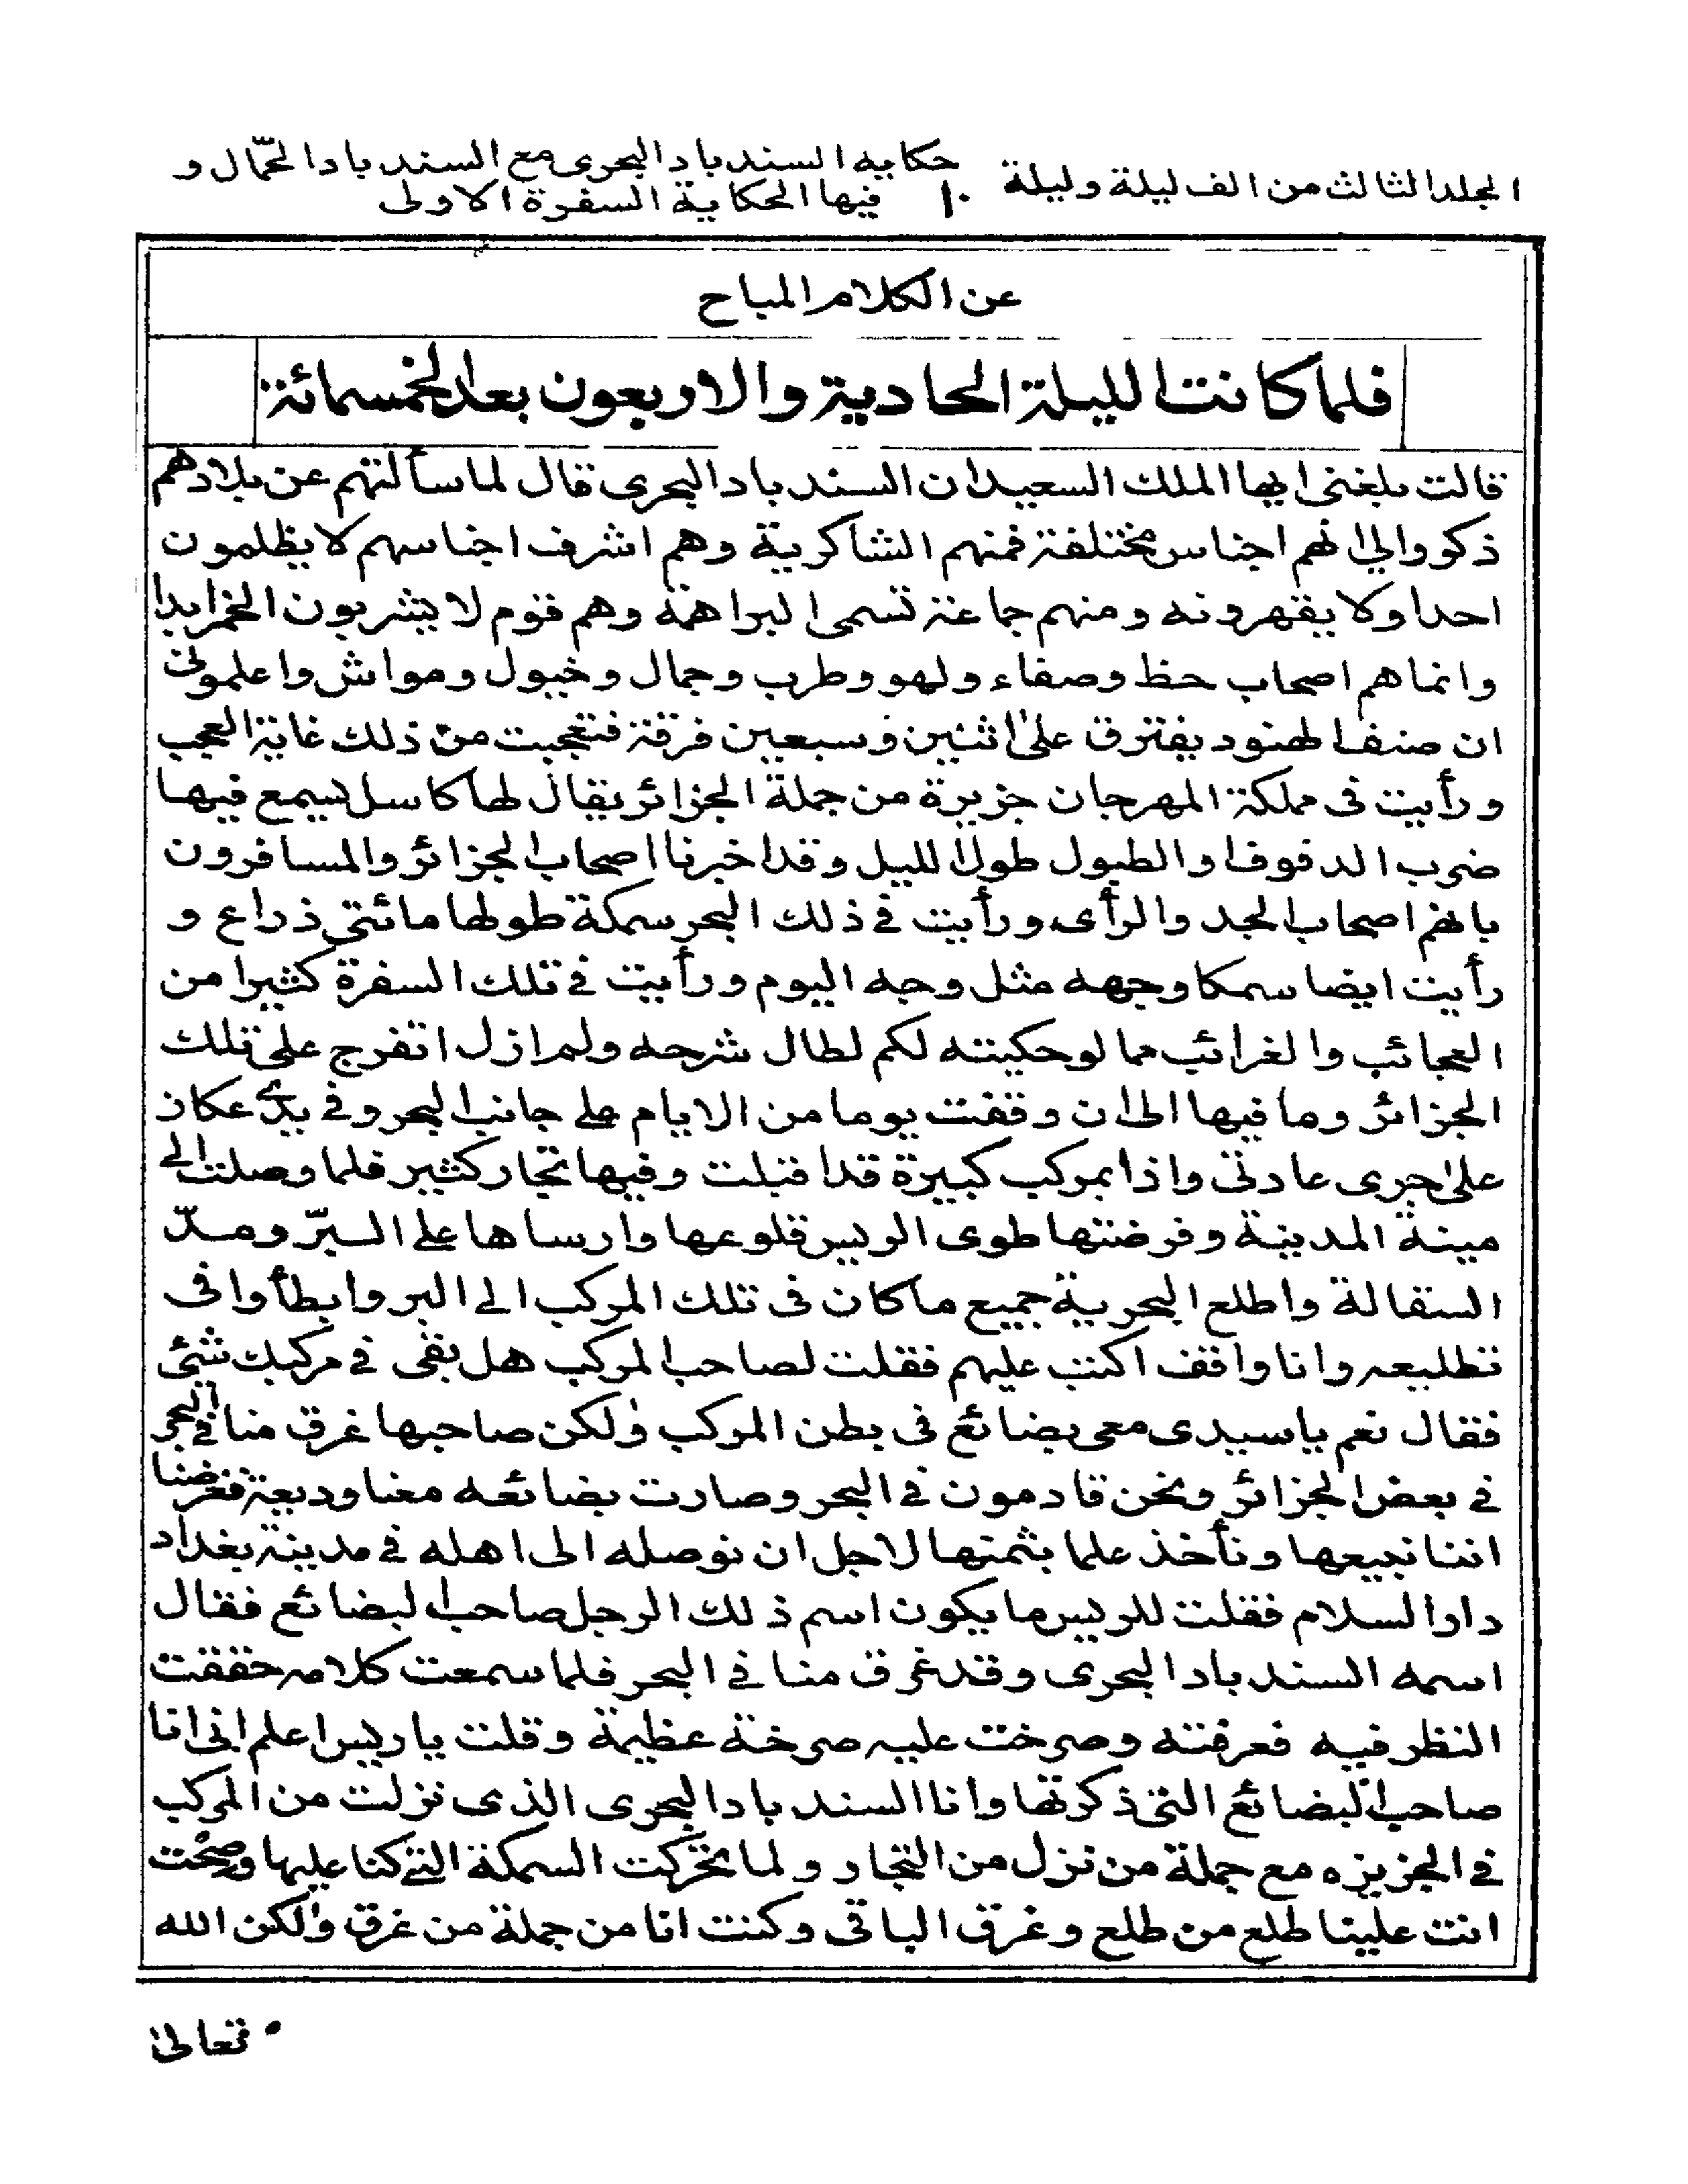 المجلد الثالث من الف ليلة وليلة ١٠ حكاية السندباد البحرى مع السندباد الحمّال و
فيها الحكاية السفرة الاولى
عن الكلام المباح
فلما كانت الليلة الحادية والاربعون بعد الخمسمائة
قالت بلغنى ايها الملك السعيد ان السندباد البحرى قال لما سألتهم عن بلادهم
ذكروا لي انهم اجناس مختلفة فمنهم الشاكرية وهم اشرف اجناسهم لا يظلمون
احدا ولا يقهرونه ومنهم جماعة تسمى البراهمة وهم قوم لا يشربون الخمر ابدا
وانما هم اصحاب حظ وصفاء ولهو وطرب وجمال وخيول ومواش واعلمونى
ان صنف الهنود يفترق على اثنين وسبعين فرقة فتعجبت من ذلك غاية العجب
ورأيت فى مملكة المهرجان جزيرة من جملة الجزائر يقال لها كاسل يسمع فيها
ضرب الدفوف والطبول طول الليل وقد اخبرنا اصحاب الجزائر والمسافرون
بانهم اصحاب الجد والرأى ورأيت في ذلك البحر سمكة طولها مائتى ذراع و
رأيت ايضا سمكا وجهه مثل وجه البوم ورأيت في تلك السفرة كثيرا من
العجائب والغرائب مما لو حكيته لكم لطال شرحه ولم ازل اتفرج على تلك
الجزائر وما فيها الى ان وقفت يوما من الايام على جانب البحر وفي يدي عكاز
على جرى عادتى واذا بمركب كبيرة قد اقبلت وفيها تجار كثير فلما وصلت الي
مينة المدينة وفرضتها طوى الريس قلوعها وارساها على البرّ ومدّ
السقالة واطلع البحرية جميع ما كان فى تلك المركب الى البر وابطأوا فى
تطليعه وانا واقف اكتب عليهم فقلت لصاحب المركب هل بقى في مركبك شئ
فقال نعم يا سيدى معى بضائع فى بطن المركب ولكن صاحبها غرق منا في البحر
في بعض الجزائر ونحن قادمون في البحر وصارت بضائعه معنا وديعة فغرضنا
اننا نبيعها ونأخذ علما بثمنها لاجل ان نوصله الى اهله في مدينة بغداد
دار السلام فقلت للريس ما يكون اسم ذلك الرجل صاحب البضائع فقال
اسمه السندباد البحرى وقد غرق منا في البحر فلما سمعت كلامه حققت
النظر فيه فعرفته وصرخت عليه صرخة عظيمة وقلت يا ريس اعلم انى انا
صاحب البضائع التى ذكرتها وانا السندباد البحرى الذى نزلت من المركب
في الجزيره مع جملة من نزل من التجار ولما تحركت السمكة التي كنا عليها وصحْت
انت علينا طلع من طلع وغرق الباقى وكنت انا من جملة من غرق ولكن الله
تعالى